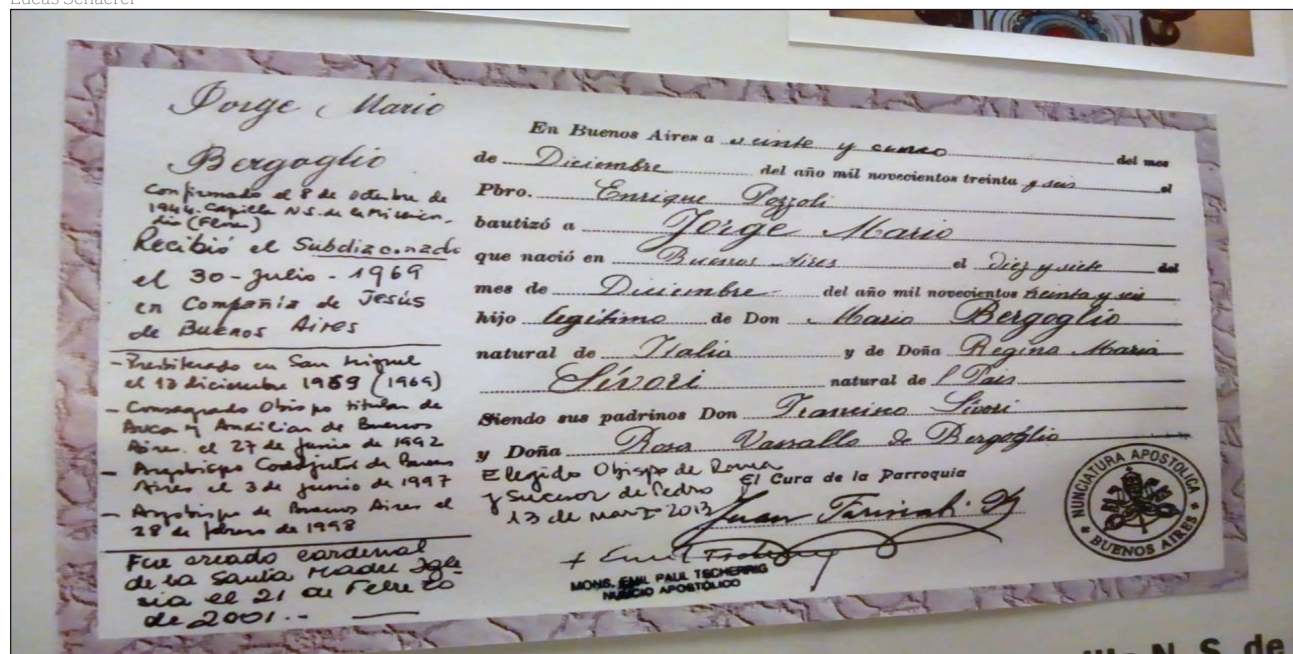 Lucas Schaerer
Jorge Mario
Bergoglio
Confirmado el 8 de octubre de
1944. Capilla N.S. de la Misericor-
dia (Flores)
Recibió el Subdiaconado
el 30-Julio-1969
en Compañía de Jesús
de Buenos Aires
- Presbiterado en San Miguel
el 13 diciembre 1969 (1969)
- Consagrado Obispo titular de
Auca y Auxiliar de Buenos
Aires. el 27 de junio de 1992
- Arzobispo Coadjutor de Buenos
Aires el 3 de junio de 1997
- Arzobispo de Buenos Aires el
28 de febrero de 1998
Fue creado cardenal
de la Santa Madre Igle
sia el 21 de Febrero
de 2001.-
En Buenos Aires a veinte y cinco del mes
de Diciembre del año mil novecientos treinta y seis el
Pbro. Enrique Pozzoli
bautizó a Jorge Mario
que nació en Buenos Aires el diez y siete del
mes de Diciembre del año mil novecientos treinta y seis
hijo legítimo de Don Mario Bergoglio
natural de Italia y de Doña Regina María
Sívori natural de l País
Siendo sus padrinos Don Francisco Sívori
y Doña Rosa Vassallo de Bergoglio
Elegido Obispo de Roma
y Sucesor de Pedro
13 de marzo 2013
El Cura de la Parroquia
Juan
+ Emil Tscherrig
MONS. EMIL PAUL TSCHERRIG
NUNCIO APOSTÓLICO
NUNCIATURA APOSTOLICA
BUENOS AIRES
N. S. de